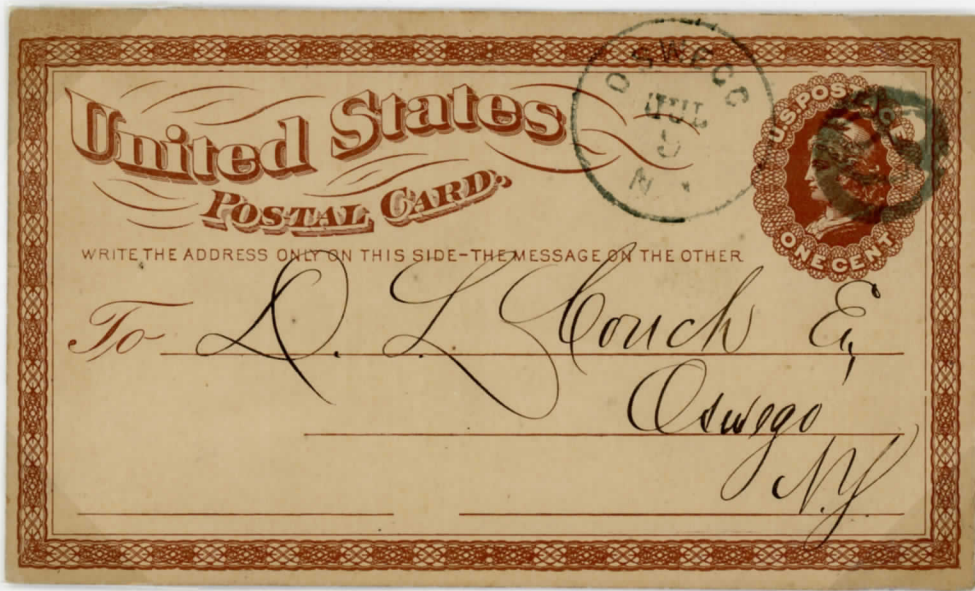 United States
POSTAL CARD.
OSWEGO
JUL
N
U.S. POSTAGE
ONE CENT
WRITE THE ADDRESS ONLY ON THIS SIDE-THE MESSAGE ON THE OTHER
To D. L. Couch
Oswego
N.Y.